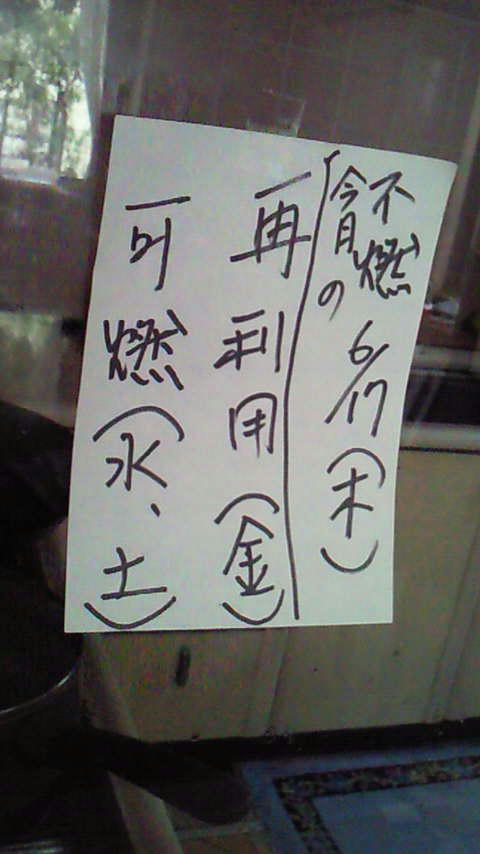 不燃 6/17(木)
今月の
再利用(金)
可燃(水、土)